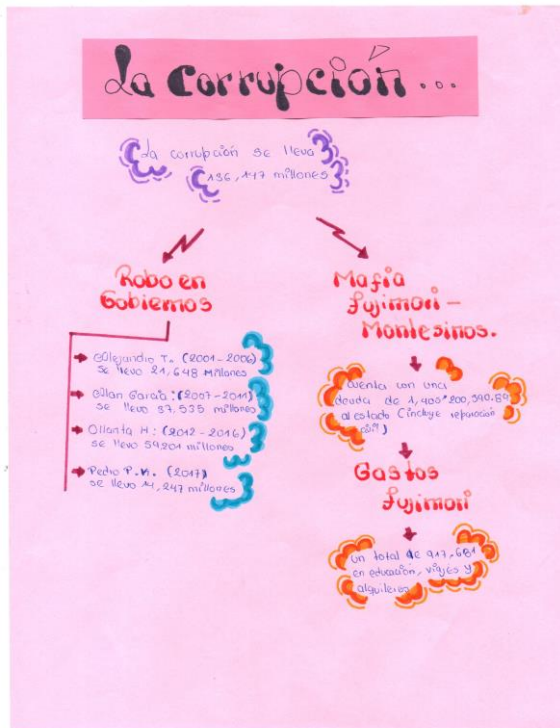 La Corrupción...
La corrupción se lleva
136,147 millones
Robo en
Gobiernos
Alejandro T. (2001-2006)
se llevo 21,648 Millones
Alan García: (2007-2011)
se llevo 37.535 millones
Ollanta H.: (2012-2016)
se llevo 59201 millones
Pedro P.K. (2017)
se llevo 14,247 millones
Mafia
Fujimori -
Montesinos.
cuenta con una
deuda de 1,405'200,590.89
al estado (incluye reparación
civil)
Gastos
Fujimori
un total de 917,681
en educación, viajes y
alquileres